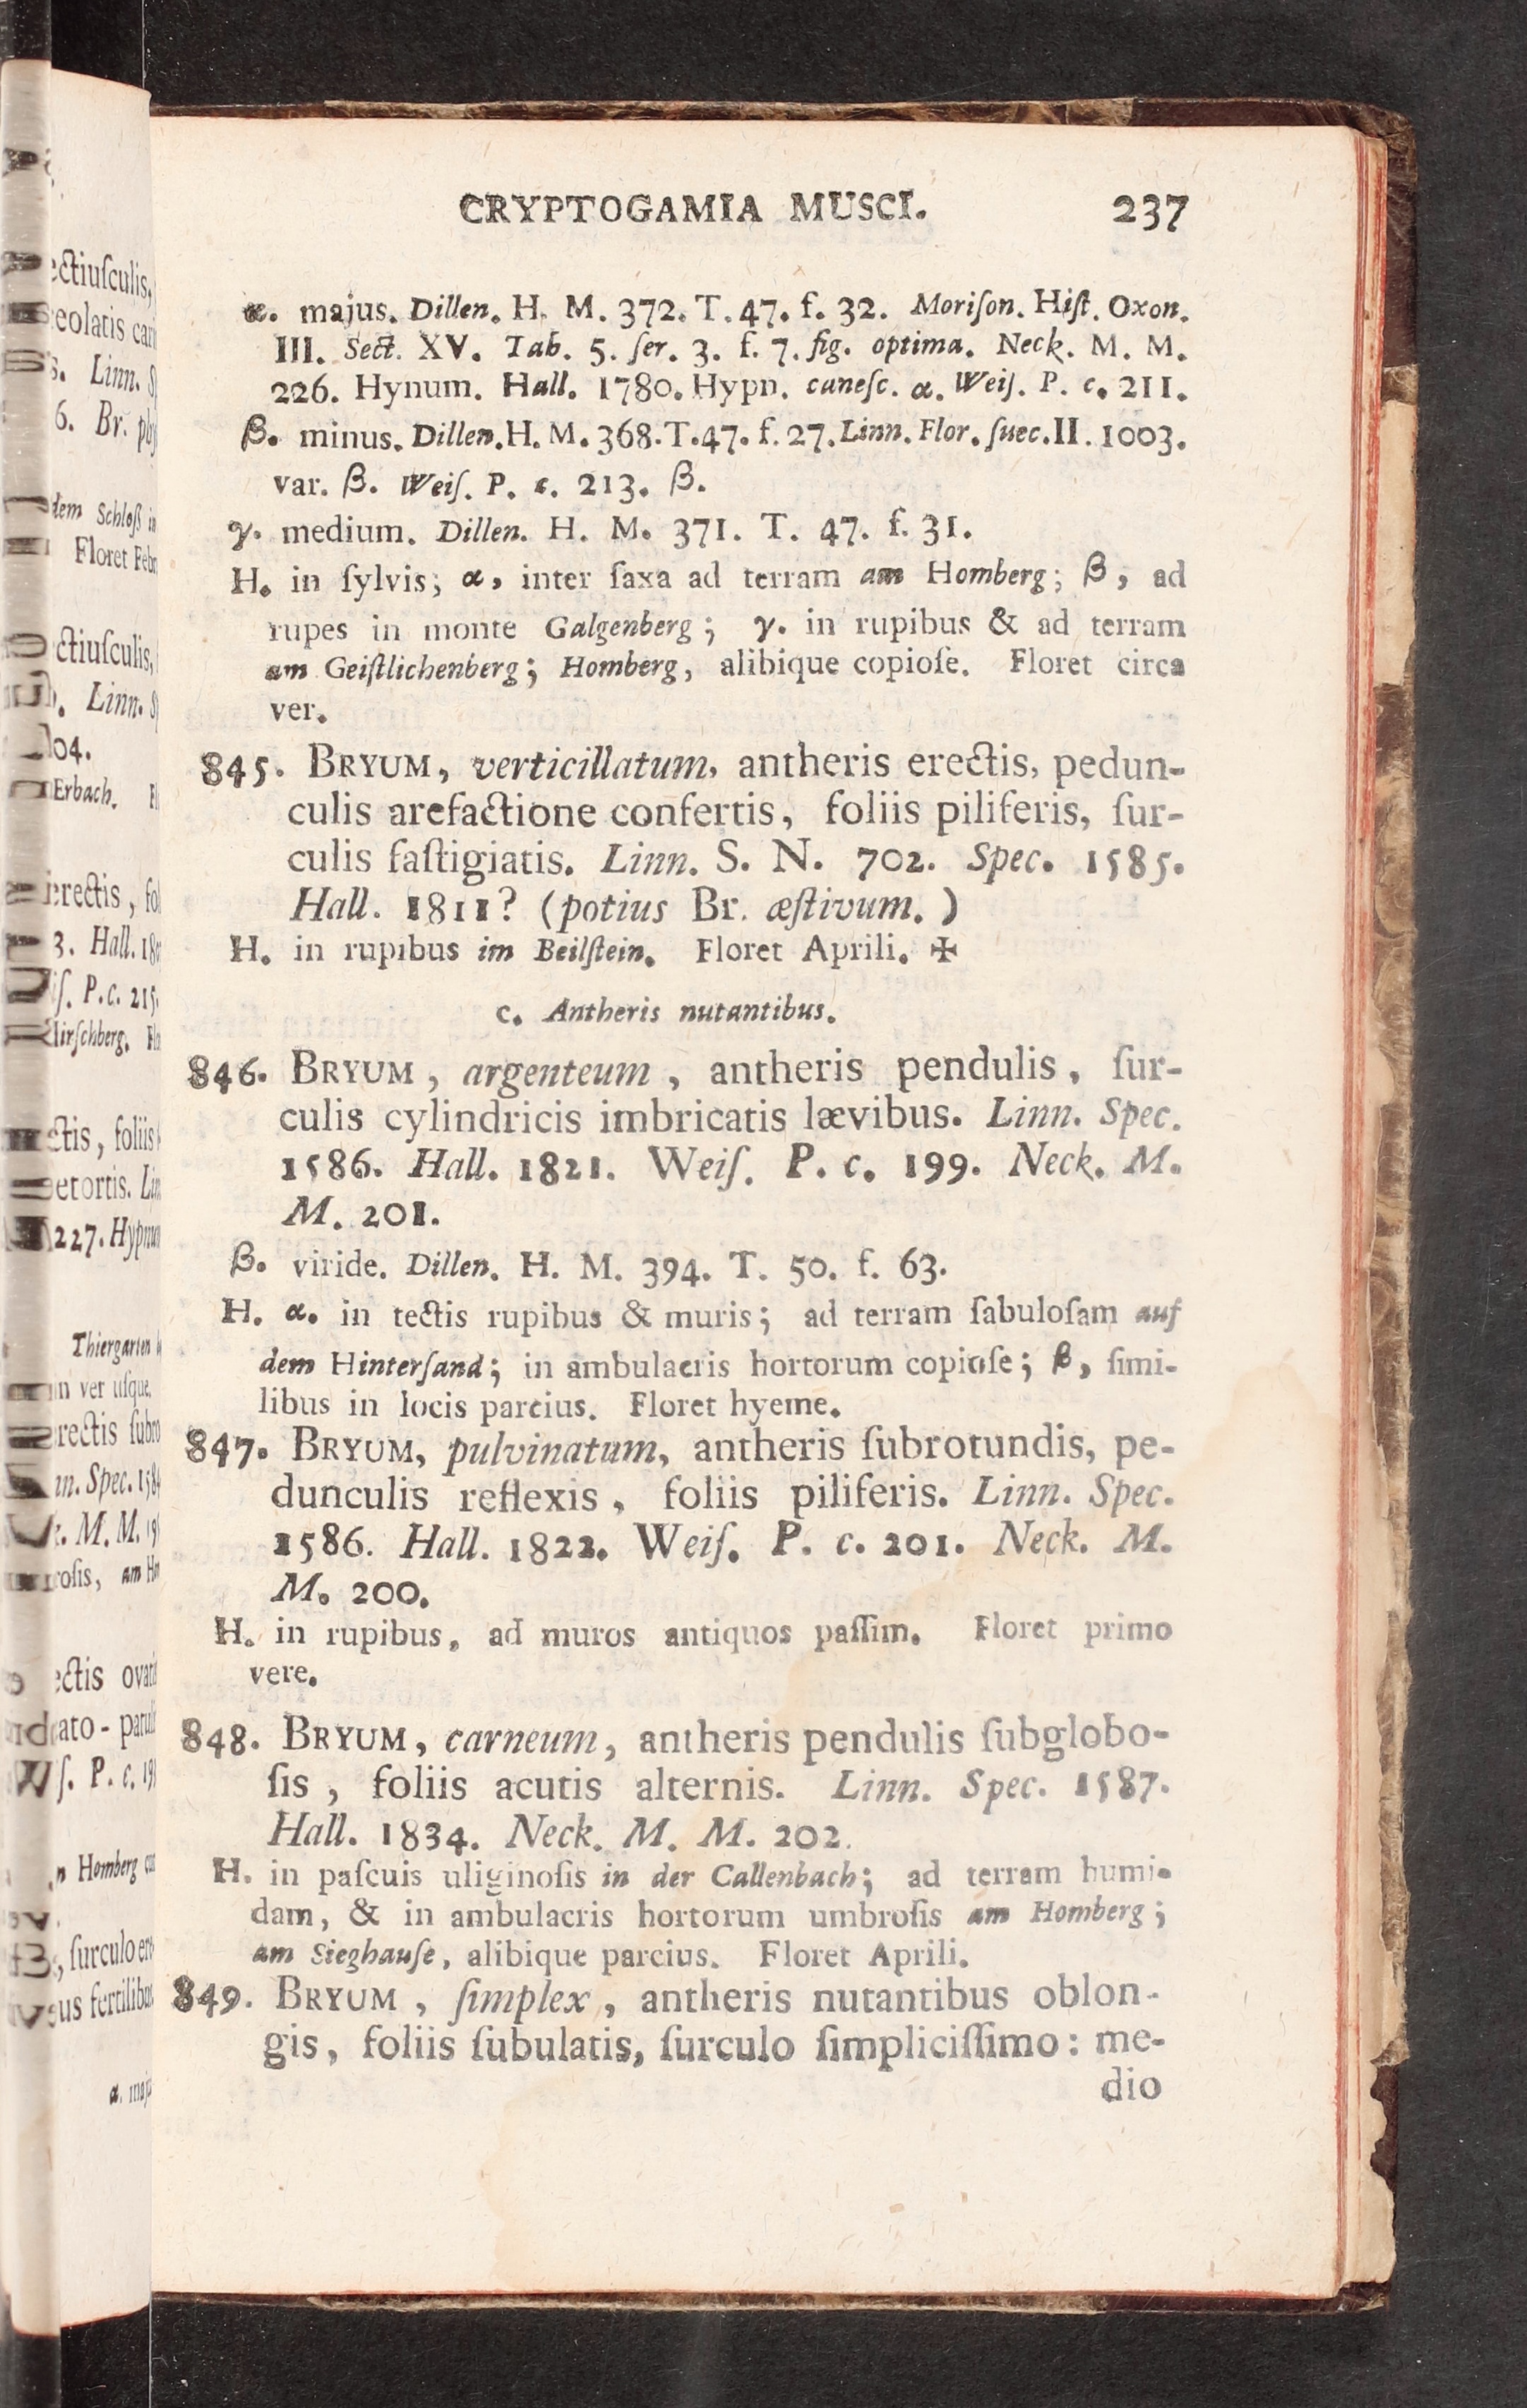 CRYPTOGAMIA MUSCI. 237
α. majus. Dillen. H. M. 372. T. 47. f. 32. Moriſon. Hiſt. Oxon.
III. Sect. XV. Tab. 5. ſer. 3. f. 7. fig. optima. Neck. M. M.
226. Hynum. Hall. 1780. Hypn. caneſc. α. Weiſ. P. c. 211.
β. minus. Dillen. H. M. 368. T. 47. f. 27. Linn. Flor. ſuec. II. 1003.
var. β. Weiſ. P. c. 213. β.
γ. medium. Dillen. H. M. 371. T. 47. f. 31.
H. in ſylvis; α, inter ſaxa ad terram am Homberg; β, ad
rupes in monte Galgenberg; γ. in rupibus & ad terram
am Geiſtlichenberg; Homberg, alibique copioſe. Floret circa
ver.
845. BRYUM, verticillatum, antheris erectis, pedun-
culis arefactione confertis, foliis piliferis, ſur-
culis faſtigiatis. Linn. S. N. 702. Spec. 1585.
Hall. 1811? (potius Br. æſtivum.)
H. in rupibus im Beilſtein. Floret Aprili. ✠
c. Antheris nutantibus.
846. BRYUM, argenteum, antheris pendulis, ſur-
culis cylindricis imbricatis lævibus. Linn. Spec.
1586. Hall. 1821. Weiſ. P. c. 199. Neck. M.
M. 201.
β. viride. Dillen. H. M. 394. T. 50. f. 63.
H. α. in tectis rupibus & muris; ad terram ſabuloſam auf
dem Hinterſand; in ambulacris hortorum copioſe; β, ſimi-
libus in locis parcius. Floret hyeme.
847. BRYUM, pulvinatum, antheris ſubrotundis, pe-
dunculis reflexis, foliis piliferis. Linn. Spec.
1586. Hall. 1822. Weiſ. P. c. 201. Neck. M.
M. 200.
H. in rupibus, ad muros antiquos paſſim. Floret primo
vere.
848. BRYUM, carneum, antheris pendulis ſubglobo-
ſis, foliis acutis alternis. Linn. Spec. 1587.
Hall. 1834. Neck. M. M. 202.
H. in paſcuis uliginoſis in der Callenbach; ad terram humi-
dam, & in ambulacris hortorum umbroſis am Homberg;
am Sieghauſe, alibique parcius. Floret Aprili.
849. BRYUM, ſimplex, antheris nutantibus oblon-
gis, foliis ſubulatis, ſurculo ſimpliciſſimo: me-
dio